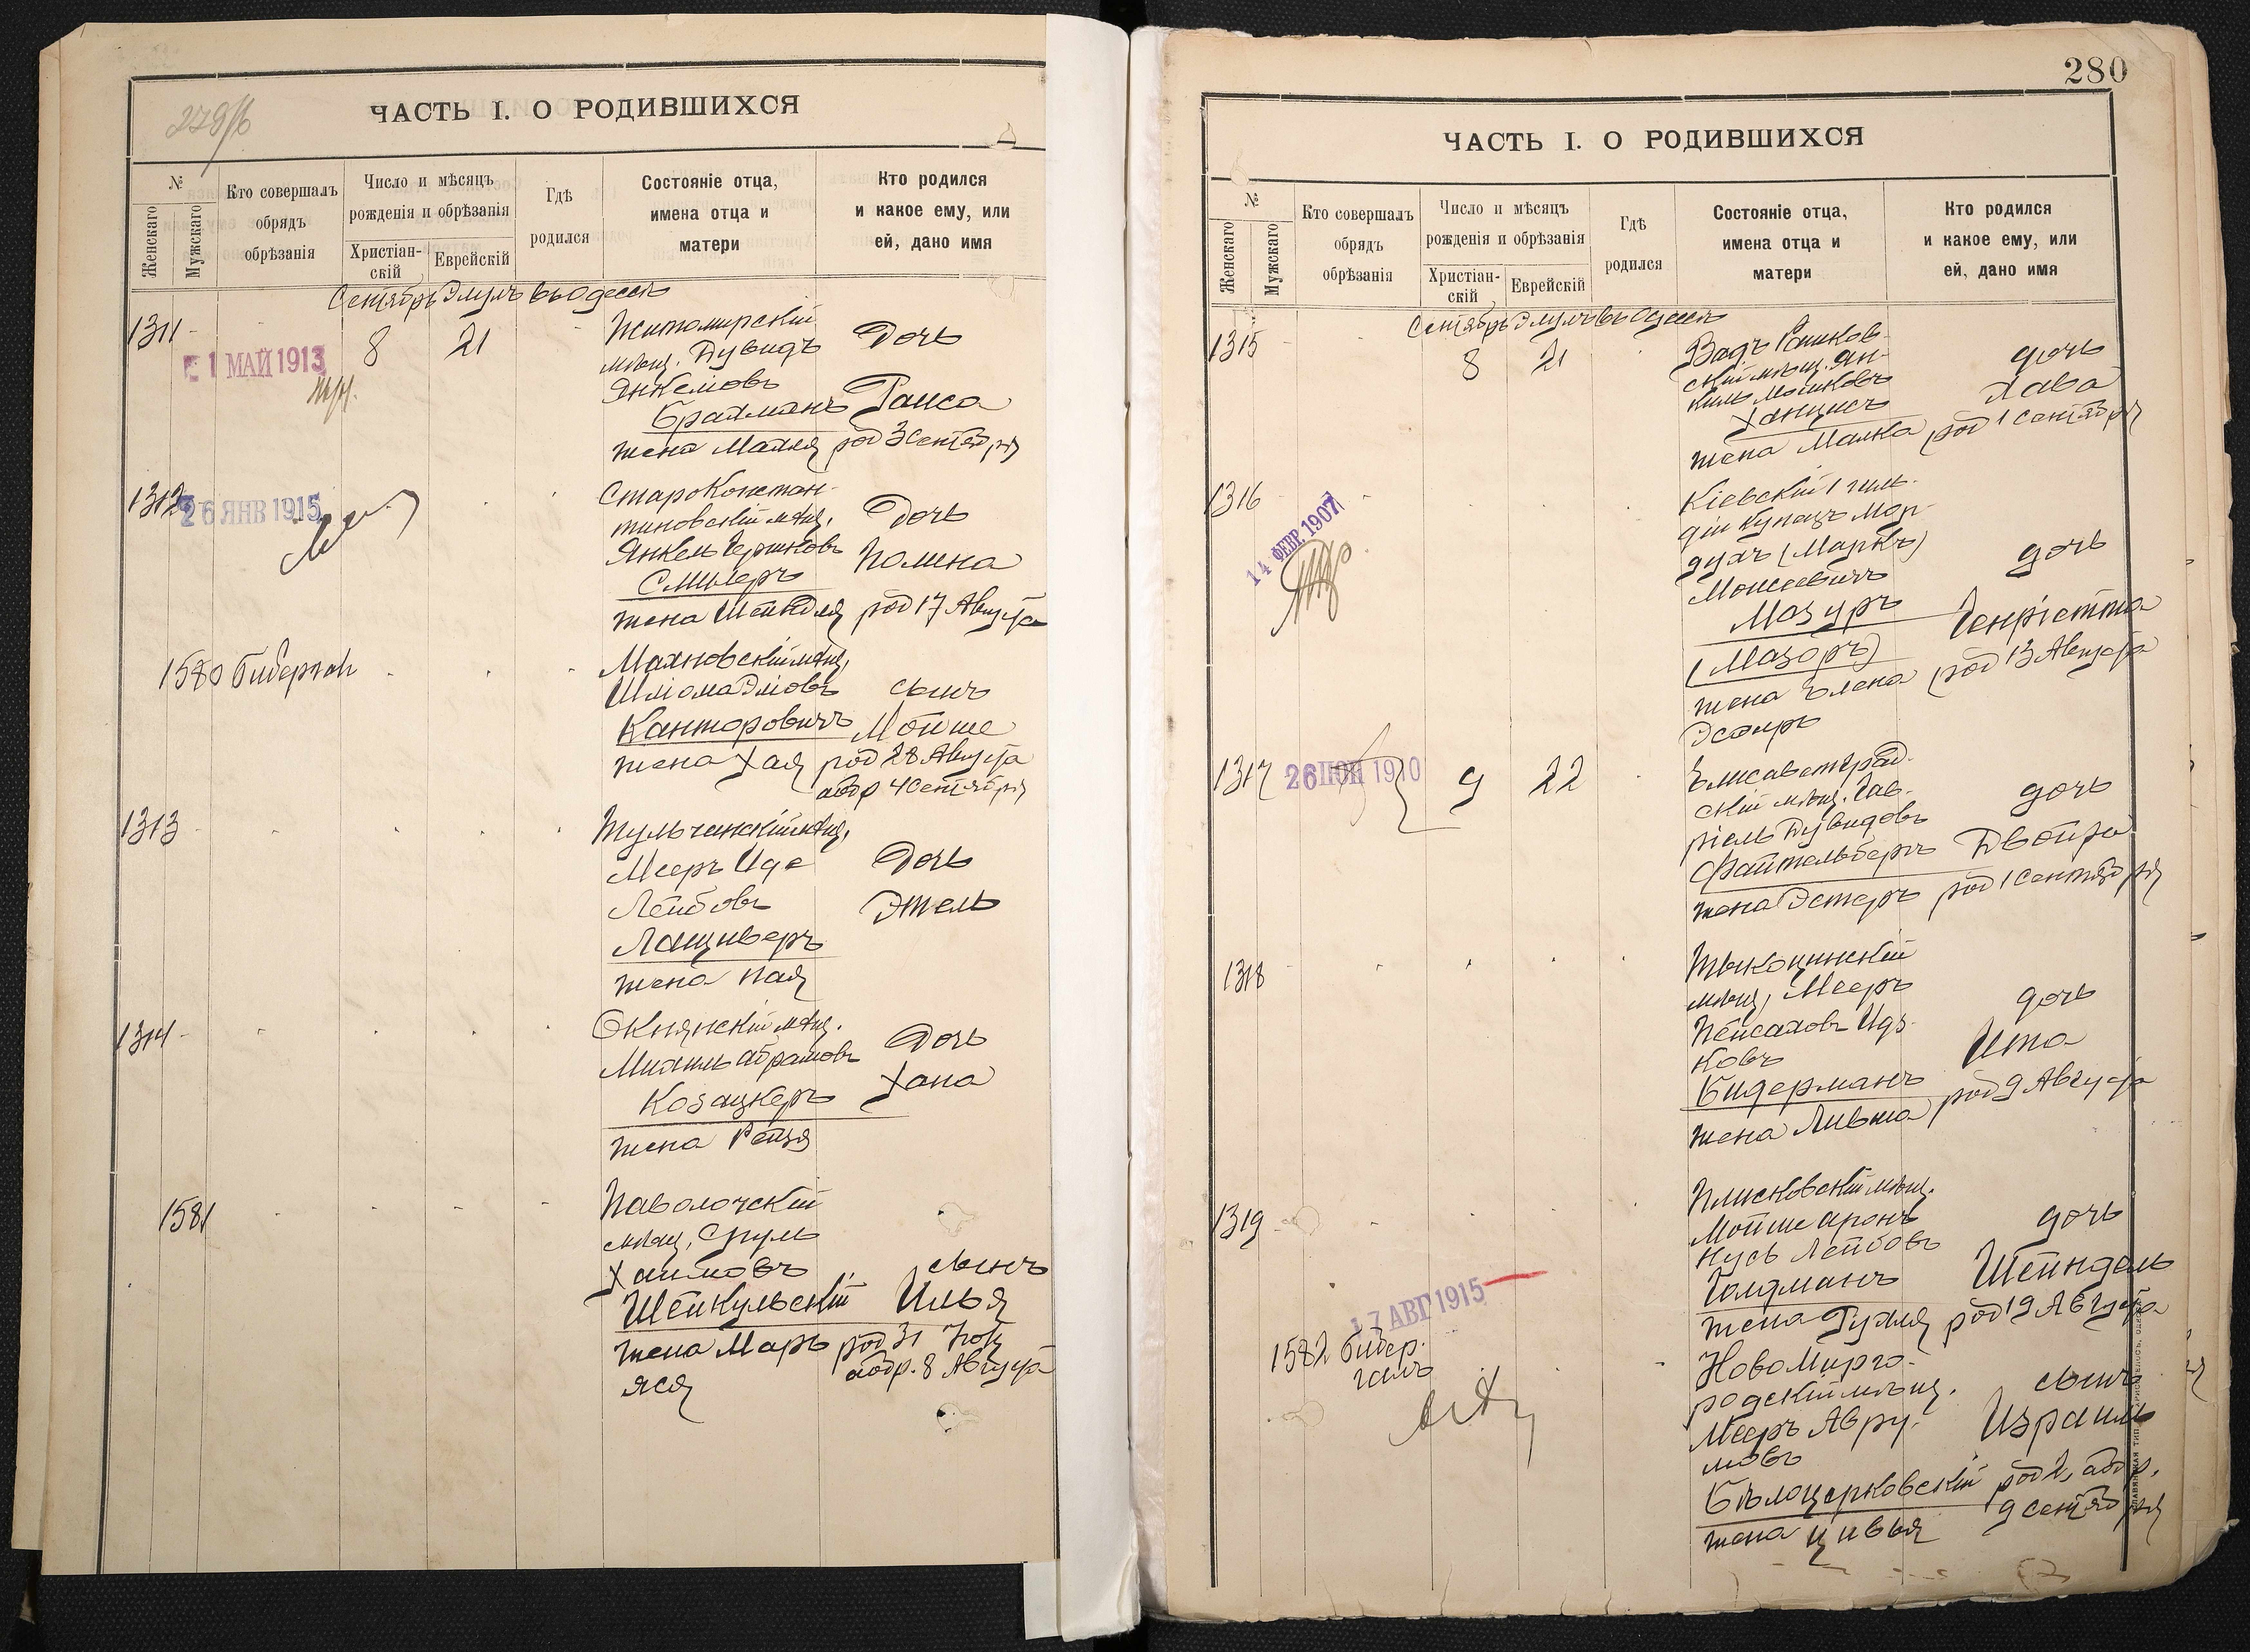 279/б
ЧАСТЬ I. О РОДИВШИХСЯ
№
Женскаго
Мужскаго
Кто совершалъ
обрядъ
обрѣзанія
Число и мѣсяцъ
рожденія и обрѣзанія
Христіан-
скій
Еврейскій
Гдѣ
родился
Состояніе отца,
имена отца и
матери
Кто родился
и какое ему, или
ей, дано имя
Сентябрь Элулъ въ Одессѣ
1311
1 МАЙ 1913
8
21
Житомирскій
мѣщ. Дувидъ
Янкелiовъ
Брахманъ
жена Малня
Дочь
Раиса
род 3 Сентября
1312
26 ЯНВ 1915
СтароКонстан-
тиновскій мѣщ.
Янкель Гершковъ
Смилеръ
жена Шейндля
Дочь
Полина
род 17 Августа
1580
Бибергалъ
Махновскій мѣщ.
Шліома Эліовъ
Канторовичъ
жена Хая
сынъ
Мойше
род 28 Августа
абр 4 Сентября
1313
Тульчинскій мѣщ.
Мееръ Иде
Лейбовъ
Лащиверъ
жена Пая
Дочь
Этель
1314
Окнянскій мѣщ.
Михель Абрамовъ
Козацкеръ
жена Рейзя
Дочь
Хана
1581
Паволочскій
мѣщ. Сруль
Хаимовъ
Шейкульскій
жена Марь
яся
сынъ
Илья
род 31 Іюл
абр. 8 Августа
280
ЧАСТЬ I. О РОДИВШИХСЯ
№
Женскаго
Мужскаго
Кто совершалъ
обрядъ
обрѣзанія
Число и мѣсяцъ
рожденія и обрѣзанія
Христіан-
скій
Еврейскій
Гдѣ
родился
Состояніе отца,
имена отца и
матери
Кто родился
и какое ему, или
ей, дано имя
Сентябрь Элулъ въ Одессѣ
1315
8
21
Вадъ Рашков-
скій мѣщ. Ян-
кель Мошковъ
Ханцисъ
жена Малка
дочь
Хава
род 1 Сентября
1316
14 ФЕВР. 1907
Кіевскій 1 гиль-
діи купецъ Мор-
духъ (Маркъ)
Моисеевичъ
Мазуръ
(Мазоръ)
жена Елена
Эстеръ
дочь
Генріетта
род 13 Августа
1317
26 1910
9
22
Елисаветград-
скій мѣщ. Гав-
ріель Дувидовъ
Файтельбергъ
жена Эстеръ
дочь
Двойра
род 1 Сентября
1318
Тыкоцинскій
мѣщ. Мееръ
Пейсаховъ Иц-
ковъ
Бидерманъ
жена Ливша
дочь
Ита
род 9 Августа
1319
Плисковскій мѣщ.
Мойше Аронъ
Нусь Лейбовъ
Голдманъ
жена Рухля
дочь
Шейндель
род 19 Августа
17 АВГ 1915
1582
Бибер-
галъ
НовоМирго-
родскій мѣщ.
Мееръ Авру-
мовъ
Бѣлоцерковскій
жена Цивья
сынъ
Израиль
род 2, абр.
9 Сентября